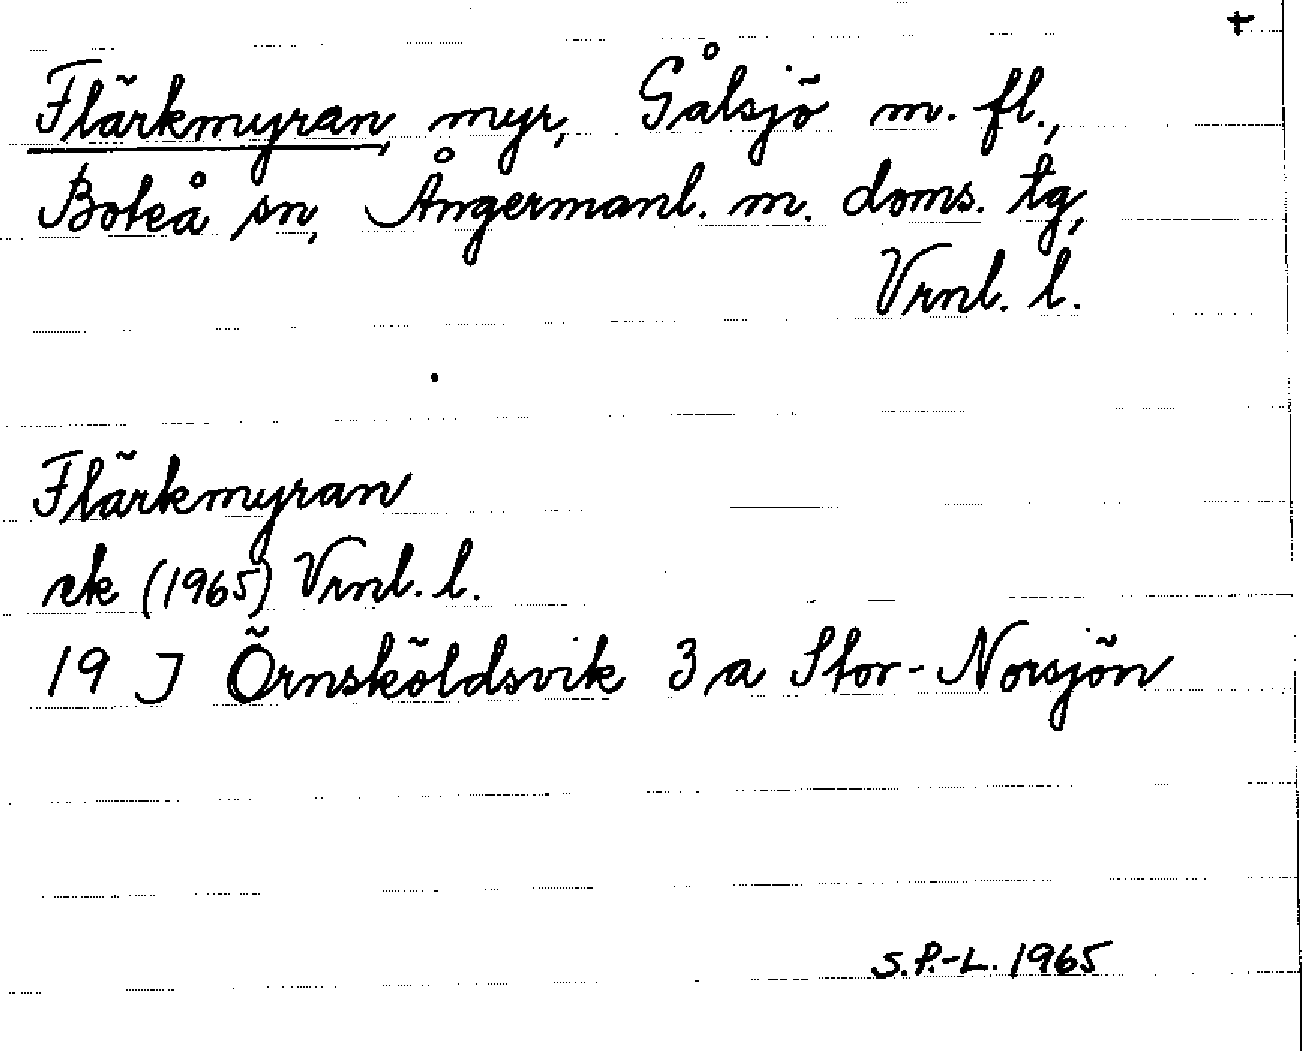 +
Flärkmyran, myr, Gålsjö m. fl.,
Boteå sn, Ångermanl. m. doms. tg,
Vrnl. l.
Flärkmyran
ek (1965) Vrnl. l.
19 J Örnsköldsvik 3 a Stor-Norsjön
S.P.-L. 1965